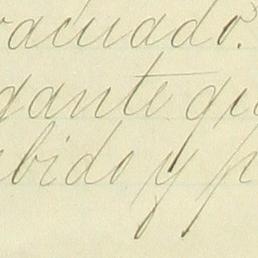 vacuado.
gante qu
bido y p